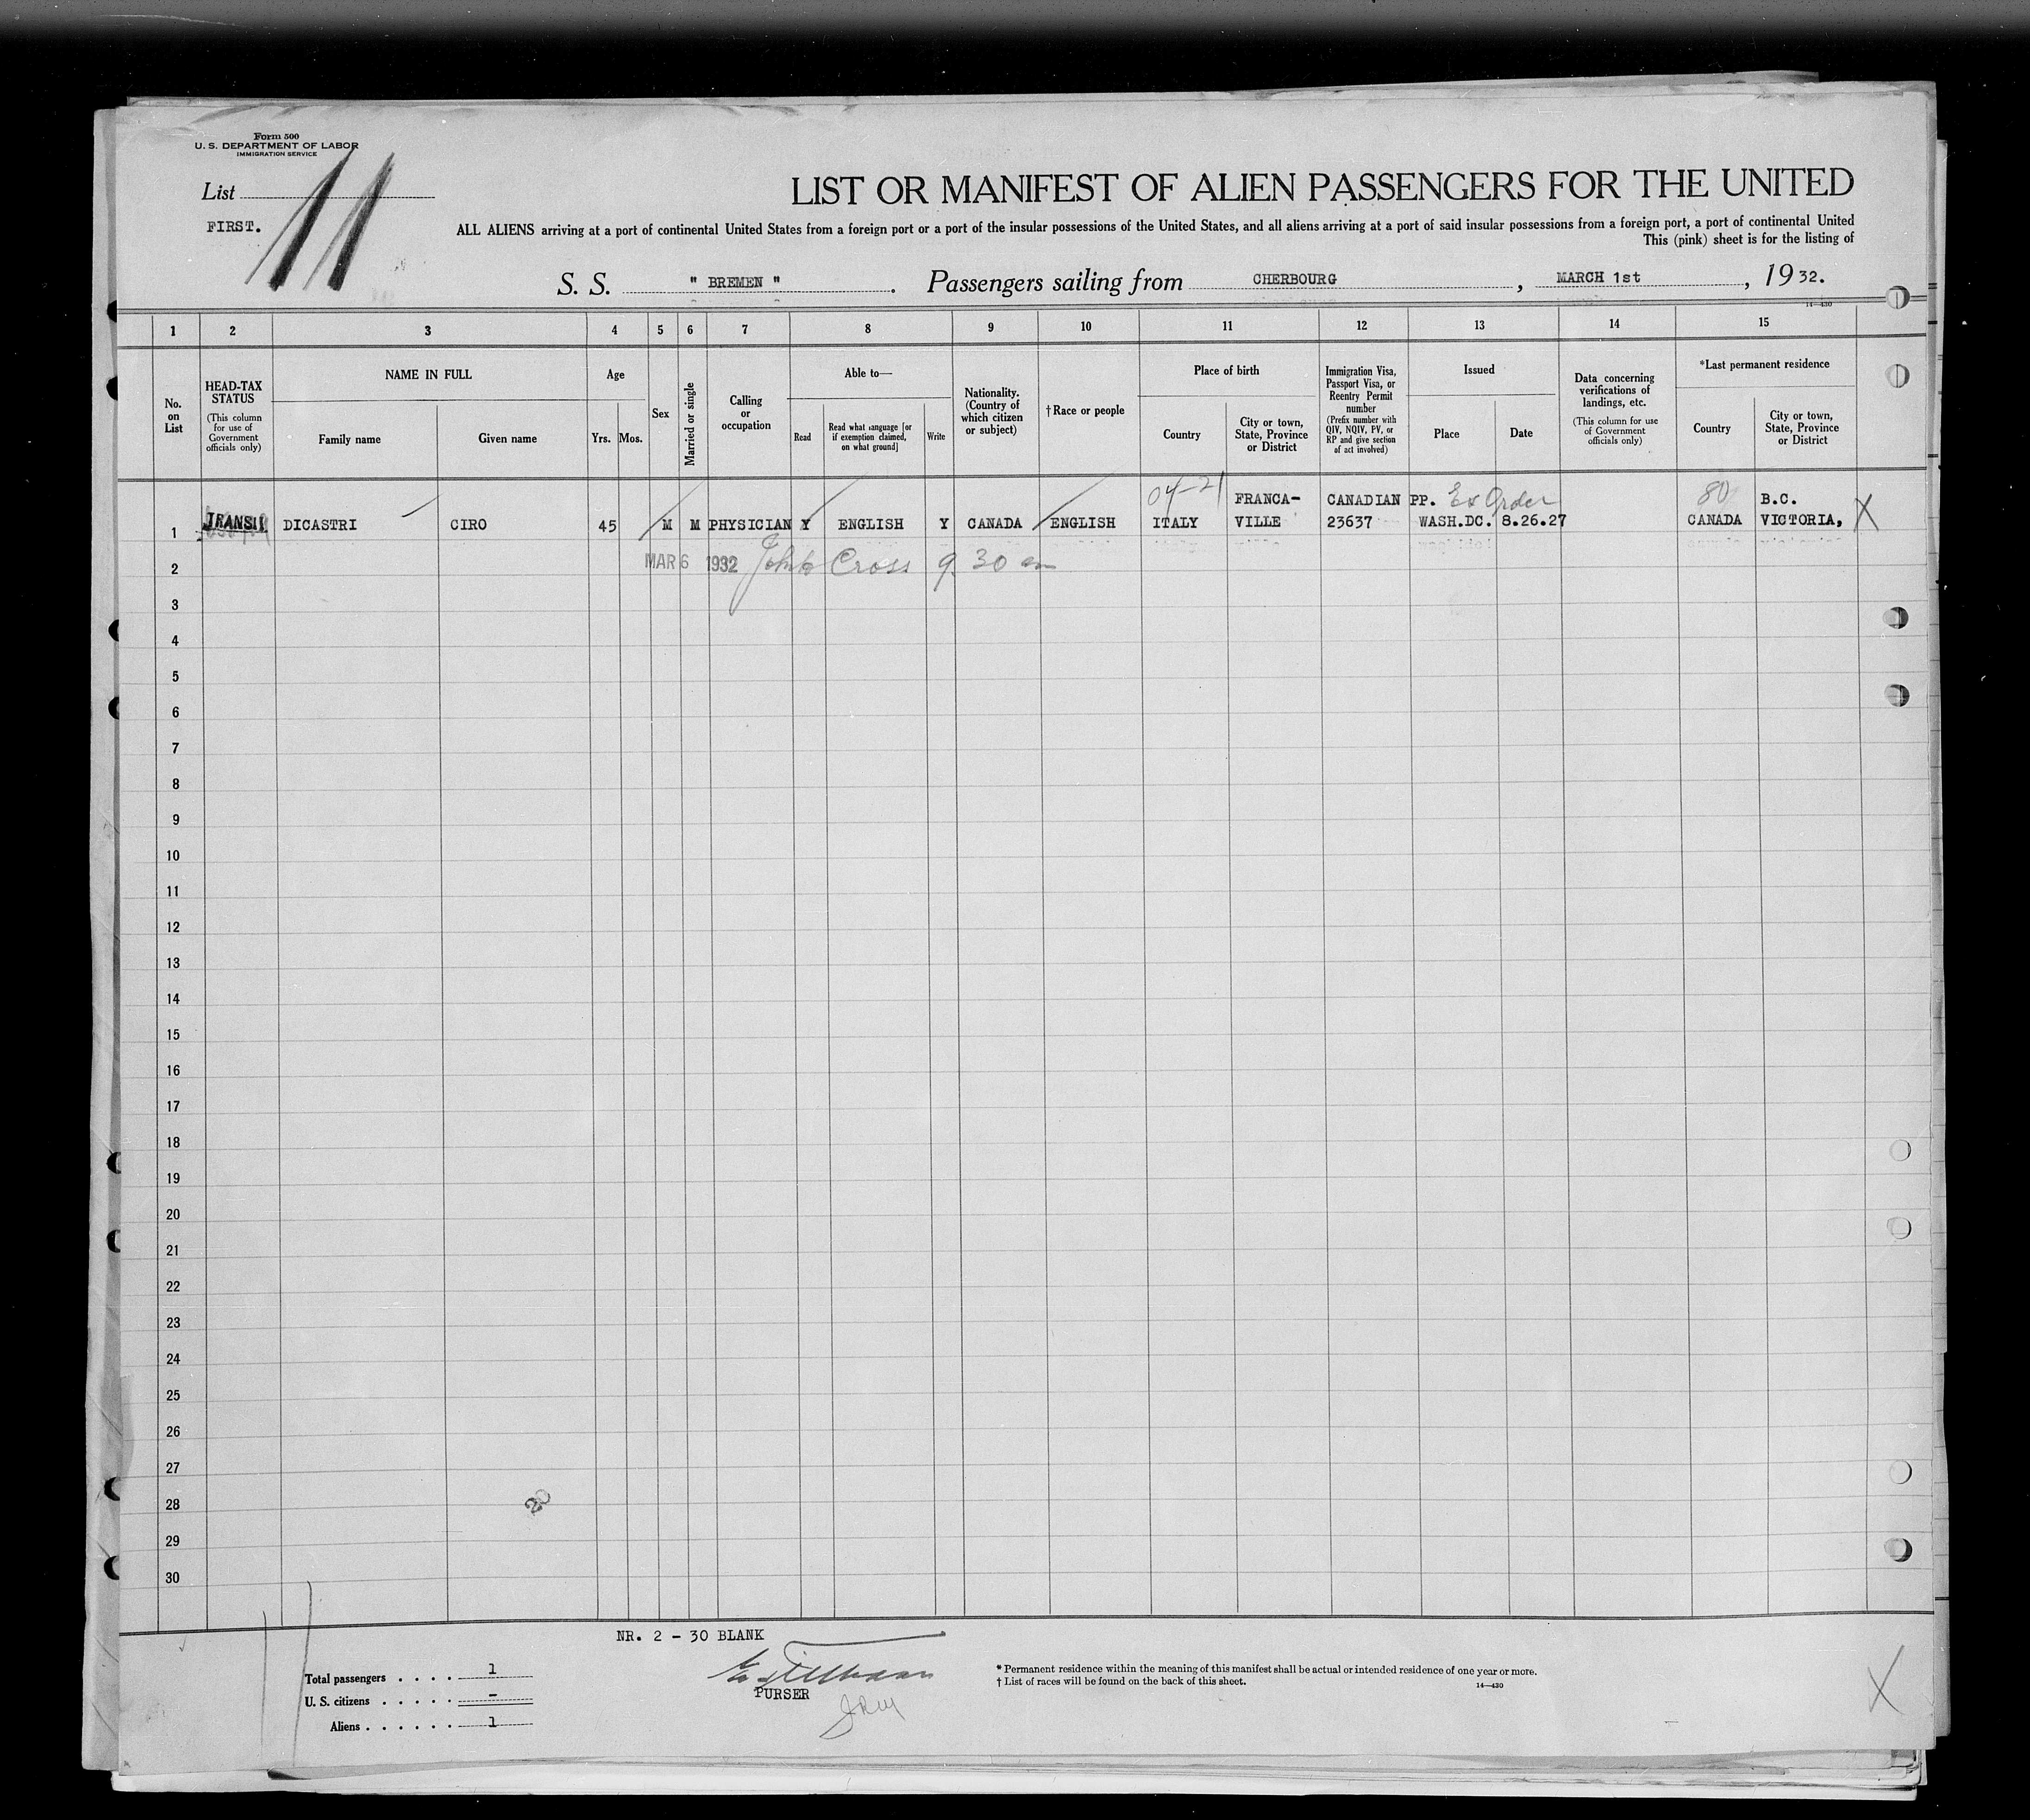 Form 500
U. S. DEPARTMENT OF LABOR
IMMIGRATION SERVICE
List
11
FIRST.
LIST OR MANIFEST OF ALIEN PASSENGERS FOR THE UNITED
ALL ALIENS arriving at a port of continental United States from a foreign port or a port of the insular possessions of the United States, and all aliens arriving at a port of said insular possessions from a foreign port, a port of continental United
This (pink) sheet is for the listing of
S. S. " BREMEN ". Passengers sailing from CHERBOURG, MARCH 1st, 1932.
14—430
1 2 3 4 5 6 7 8 9 10 11 12 13 14 15
No. on List
HEAD-TAX STATUS
(This column for use of Government officials only)
NAME IN FULL
Family name
Given name
Age
Yrs. Mos.
Sex
Married or single
Calling or occupation
Able to—
Read
Read what language [or if exemption claimed, on what ground]
Write
Nationality. (Country of which citizen or subject)
† Race or people
Place of birth
Country
City or town, State, Province or District
Immigration Visa, Passport Visa, or Reentry Permit number
(Prefix number with QIV, NQIV, PV, or RP and give section of act involved)
Issued
Place
Date
Data concerning verifications of landings, etc.
(This column for use of Government officials only)
*Last permanent residence
Country
City or town, State, Province or District
04-21 FRANCA- CANADIAN PP. Ex Order 80 B.C.
1 TRANSIT DICASTRI CIRO 45 M M PHYSICIAN Y ENGLISH Y CANADA ENGLISH ITALY VILLE 23637 WASH.DC. 8.26.27 CANADA VICTORIA, X
2 MAR 6 1932 Cross 9.30 am
3
4
5
6
7
8
9
10
11
12
13
14
15
16
17
18
19
20
21
22
23
24
25
26
27
28
20
29
30
NR. 2 - 30 BLANK
Total passengers . . . . 1
U. S. citizens . . . . . -
Aliens . . . . . . 1
PURSER
* Permanent residence within the meaning of this manifest shall be actual or intended residence of one year or more.
† List of races will be found on the back of this sheet.
14—430
X